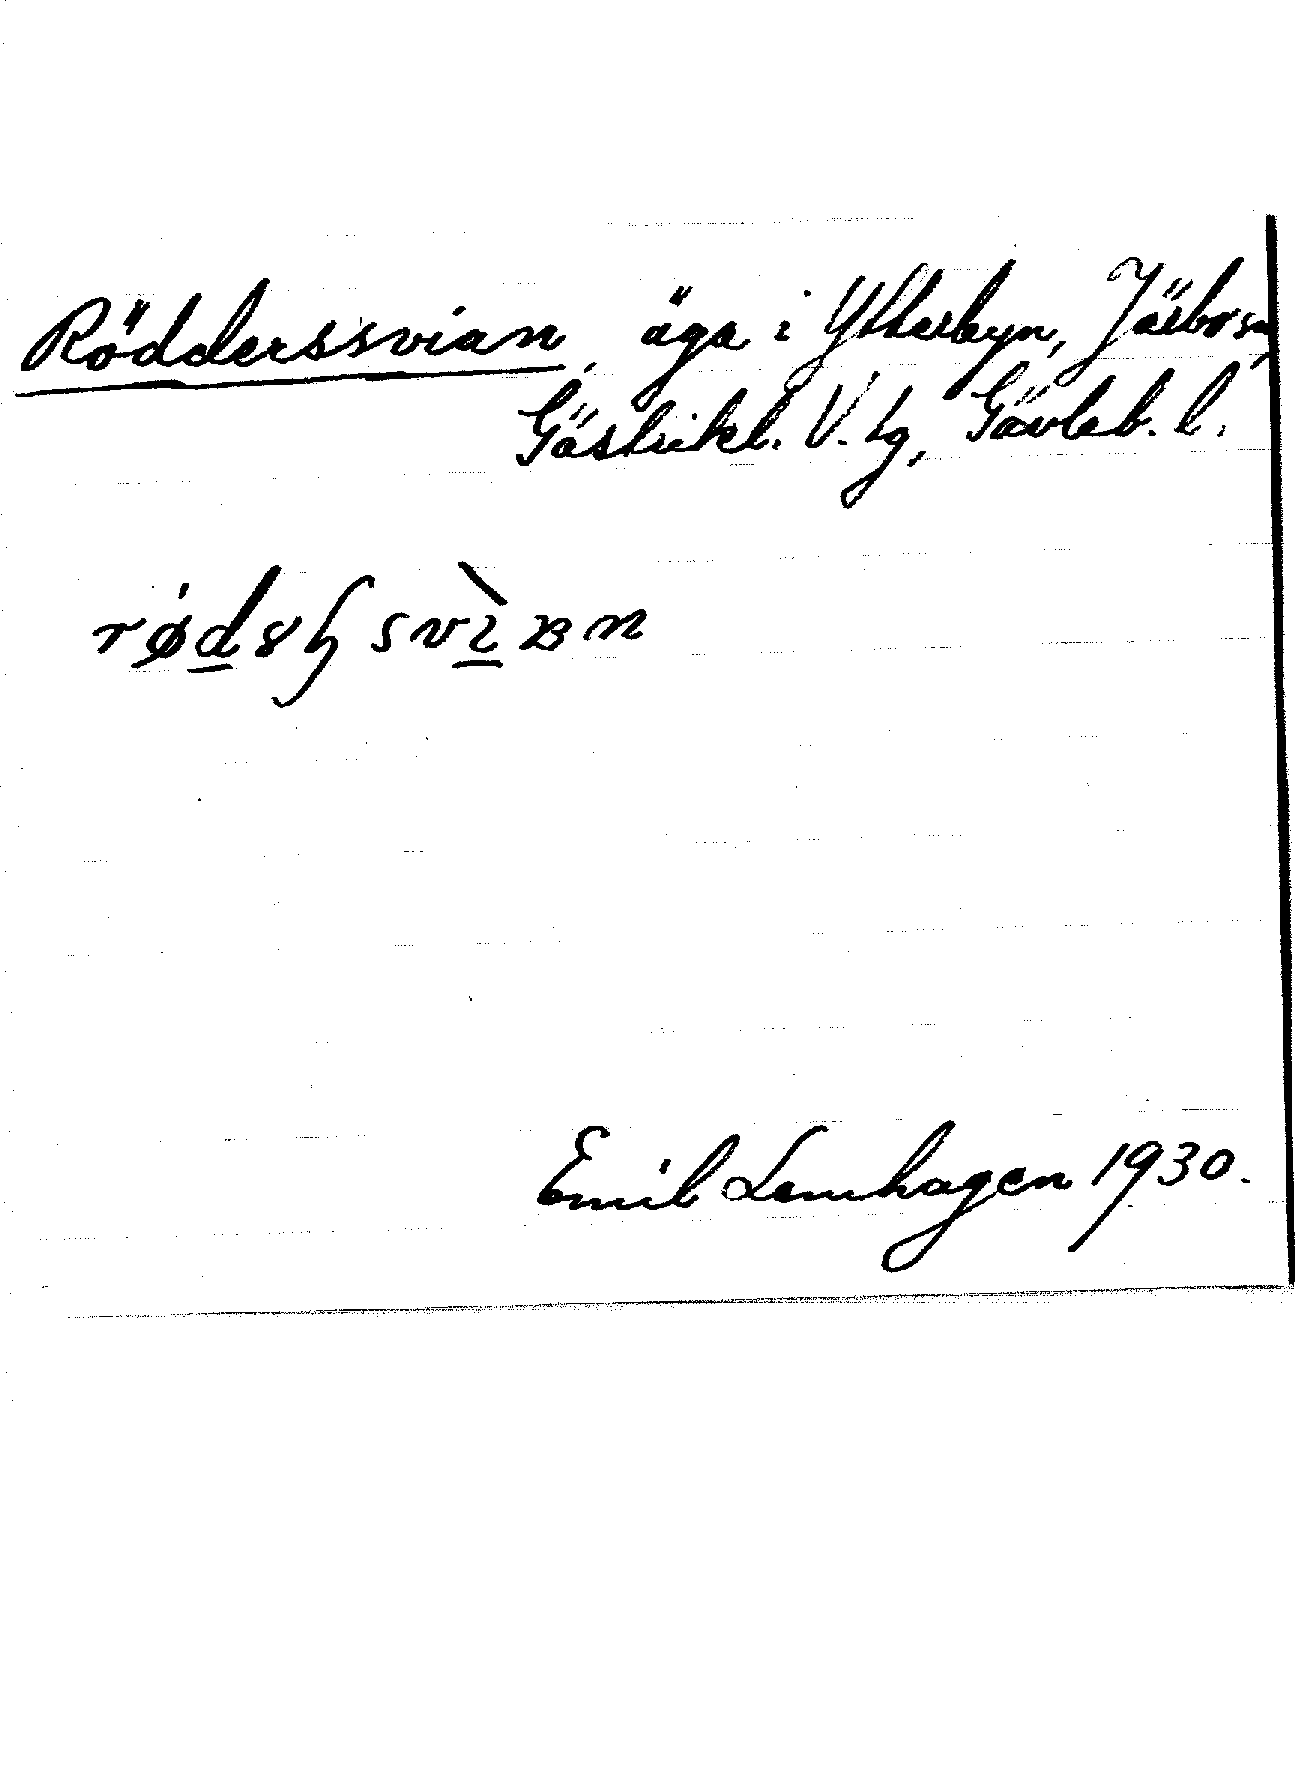 Rödderssvian, äga i Ytterbyn, Järbo sn,
Gästrikl. V. tg, Gävleb. l.
Emil Lemhagen 1930.